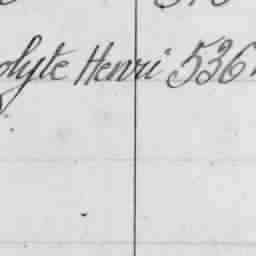 olyte Henri 536